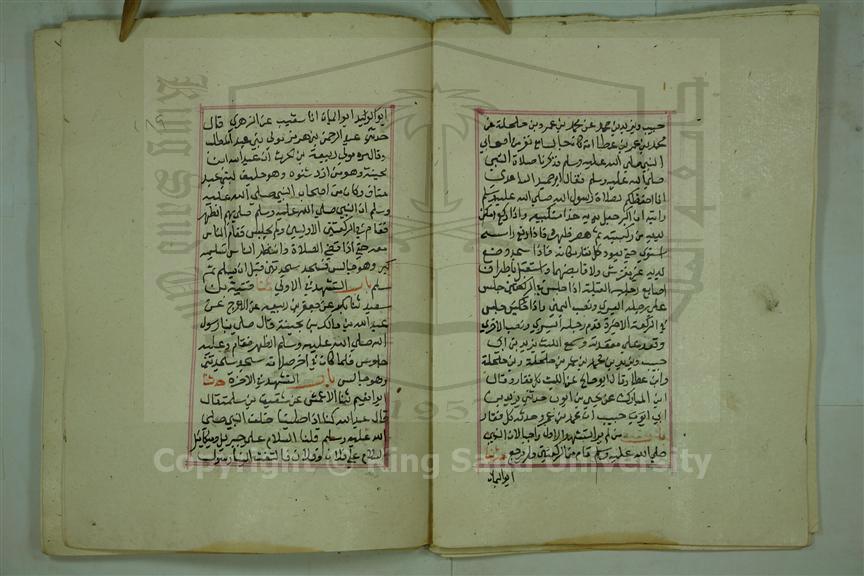 حبيب ويزيد بن محمد عن محمد بن عمرو بن حلحلة عن
محمد بن عمرو بن عطا انه كان جالسا مع نفر من اصحاب
النبي صلى الله عليه وسلم فذكرنا صلاة النبي
صلى الله عليه وسلم فقال ابو حميد الساعدي
انا احفظكم لصلاة رسول الله صلى الله عليه وسلم
رايته اذا كبر جعل يديه حذا منكبيه واذا ركع امكن
يديه من ركبتيه ثم هصر ظهره فاذا رفع راسه
استوى حتى يعود كل فقار مكانه فاذا سجد وضع
يديه غير مفترش ولا قابضهما واستقبل باطراف
اصابع رجليه القبلة اذا جلس في الركعتين جلس
على رجله اليسرى ونصب اليمنى واذا جلس
في الركعة الاخرة قدم رجله اليسرى ونصب الاخرى
وقعد على مقعدته وسمع الليث يزيد بن ابي
حبيب ويزيد بن محمد بن عمرو بن حلحلة وبن حلحلة
وابن عطا وقال ابو صالح عن الليث كل فقار وقال
ابن المبارك عن يحيى بن ايوب حدثني يزيد بن
ابي حبيب ان محمد بن عمرو حدثه كل فقار
باب من لم ير التشهد الاول واجبا لان النبي
صلى الله عليه وسلم قام من الركعتين ولم يرجع حدثنا
ابو اليمان
ابو اليمان انا شعيب عن الزهري قال
حدثني عبد الرحمن بن هرمز مولى بني عبد المطلب
وقال مرة مولى ربيعة بن الحرث ان عبد الله ابن
بحينة وهو من ازد شنوه وهو حليف لبني عبد
مناف وكان من اصحاب النبي صلى الله عليه
وسلم ان النبي صلى الله عليه وسلم صلى بهم الظهر
فقام في الركعتين الاوليين ولم يجلس فقام الناس
معه حتى اذا قضى الصلاة وانتظر الناس تسليمه
كبر وهو جالس فسجد سجدتين قبل ان يسلم ثم
سلم باب التشهد في الاولى حدثنا قتيبة بن
سعيد ثنا بكر عن جعفر بن ربيعة عن الاعرج عن
عبد الله بن مالك بن بحينة قال صلى بنا رسول
الله صلى الله عليه وسلم الظهر فقام وعليه
جلوس فلما كان في اخر صلاته سجد سجدتين
وهو جالس باب التشهد في الاخرة حدثنا
ابو نعيم ثنا الاعمش عن شقيق بن سلمة قال
قال عبد الله كنا اذا صلينا خلف النبي صلى
الله عليه وسلم قلنا السلام على جبريل وميكائيل
السلام على فلان وفلان فالتفت الينا رسول
Copyright © King Saud University
King Saud
1957